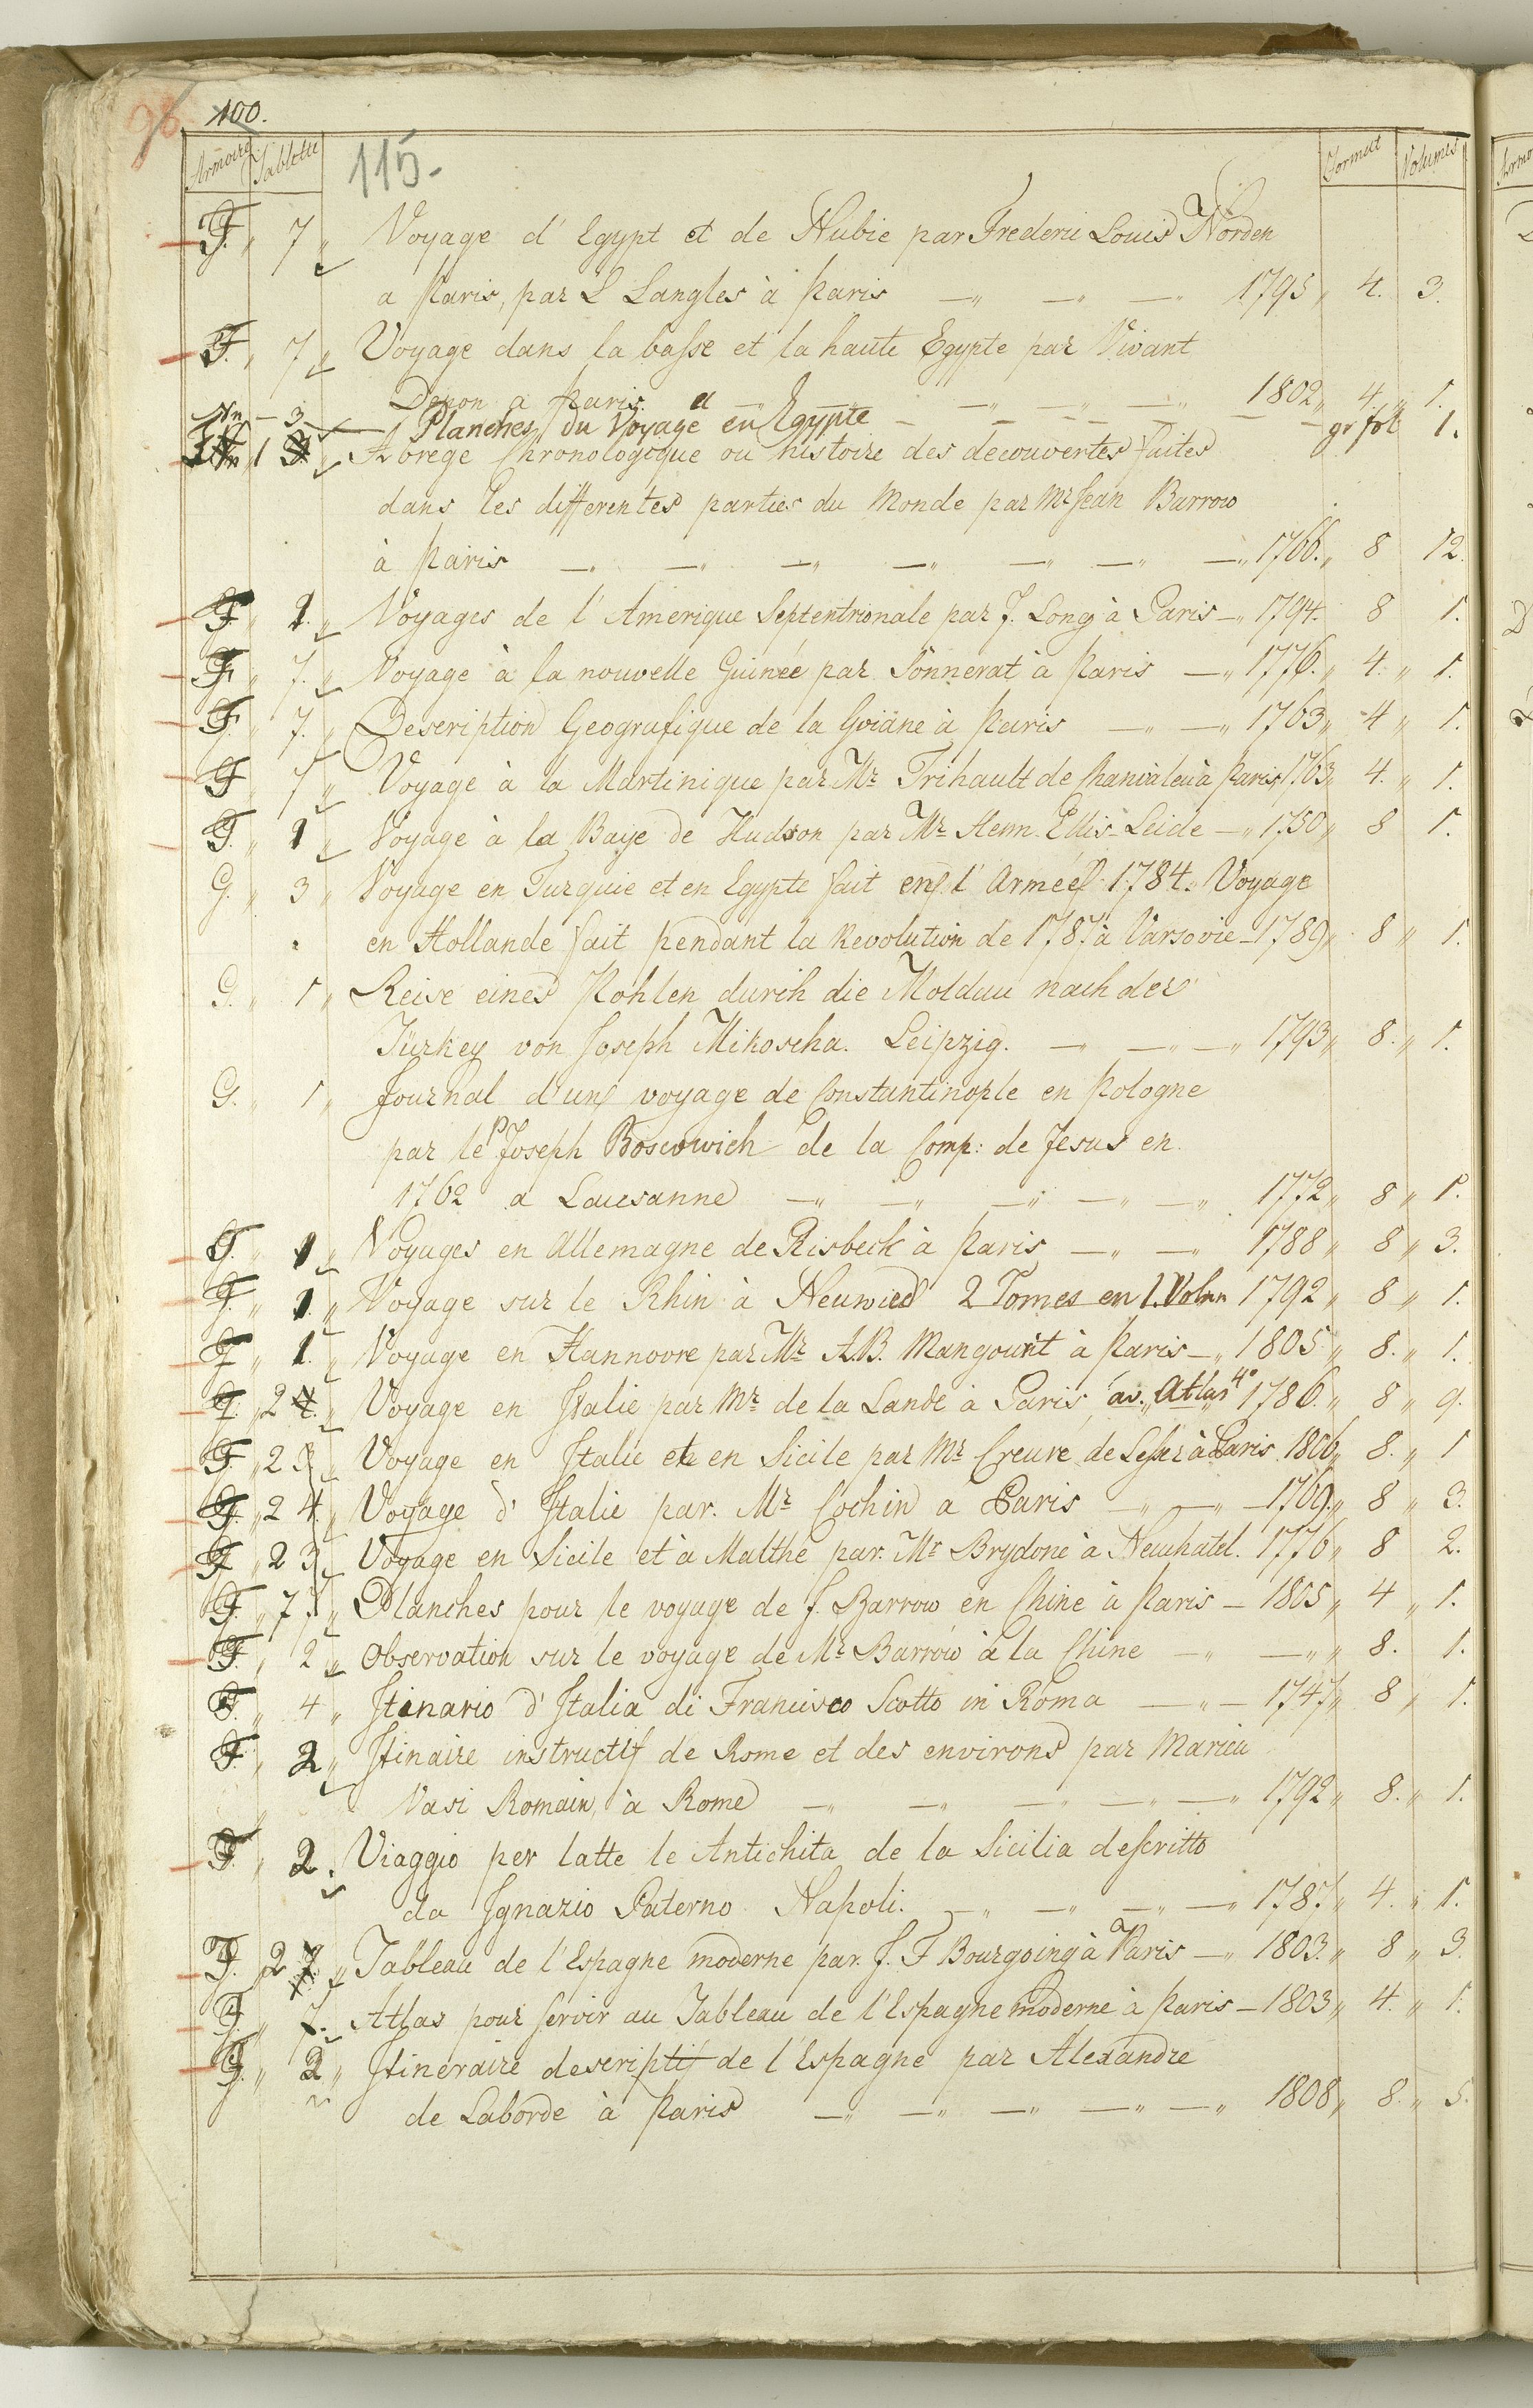 98 100.
Armoire Tablette Format Volumes
115.
F. 7 Voyage d'Egypt et de Nubie par Frederic Louis Norden
a Paris, par L Langles à Paris 1795 4. 3.
F. 7 Voyage dans la basse et la haute Egypte par Vivant
Denon a Paris 1802 4. 1.
3. Planches du Voyage en Egypte gr fol 1.
1 Abregé Chronologique ou histoire des decouvertes faites
dans les differentes parties du Monde par Mr Jean Barrow
à Paris 1766. 8 12.
F 1. Voyages de l'Amerique Septentrionale par J. Long à Paris 1794. 8 1.
F 7. Voyage à la nouvelle Guinée par Sonnerat à Paris 1776. 4. 1.
F. 7. Description Geografique de la Goiane à Paris 1763 4 1.
F 7 Voyage à la Martinique par Mr Trihault de Chanvaleu à Paris 1763 4. 1.
F. 1 Voyage à la Baye de Hudson par Mr Henn. Ellis Leide 1750 8 1.
G. 3 Voyage en Turquie et en Egypte fait en l'Armée 1784. Voyage
en Hollande fait pendant la Revolution de 1787 à Varsovie 1789 8 1.
G. 1 Reise eines Pohlen durch die Moldau nach der
Türkey von Joseph Mikoscha. Leipzig. 1793 8. 1.
G. 1 Journal d'un voyage de Constantinople en Pologne
par le P Joseph Boscowich de la Comp: de Jesus en
1762 a Lausanne 1772 8 1.
F. 1 Voyages en Allemagne de Risbeck à Paris 1788 8 3.
F. 1. Voyage sur le Rhin à Neuwied 2 Tomes en 1. Volum 1792 8 1.
F 1. Voyage en Hannovre par Mr A.B. Mangourit à Paris 1805 8. 1.
F. 2 Voyage en Italie par Mr de la Lande à Paris av. Atlas 4° 1786. 8 9.
F. 2 3 Voyage en Italie et en Sicile par Mr Creuve de Lesser à Paris 1806 8. 1
F. 2 4 Voyage d'Italie par. Mr Cochin a Paris 1769. 8 3.
F 2 3 Voyage en Sicile et à Malthe par. Mr Brydone à Neuchatel. 1776 8 2.
F. 7 Planches pour le voyage de J. Barrow en Chine à Paris 1805 4 1.
F. 2 Observation sur le voyage de Mr Barrow à la Chine 8. 1.
F. 4 Itinario d'Italia di Francisco Scotto in Roma 1747 8 1.
F. 2 Itinaire instructif de Rome et des environs par Marien
Vasi Romain, à Rome 1792 8. 1.
F. 2. Viaggio per latte le Antichita de la Sicilia descritto
da Ignazio Paterno Napoli. 1787 4. 1.
F. 2 Tableau de l'Espagne moderne par. J. F Bourgoing à Paris 1803. 8 3.
F. 7. Atlas pour servir au Tableau de l'Espagne moderne à Paris 1803 4. 1.
F. 2 Itineraire descriptif de l'Espagne par Alexandre
de Laborde à Paris 1808 8. 5.